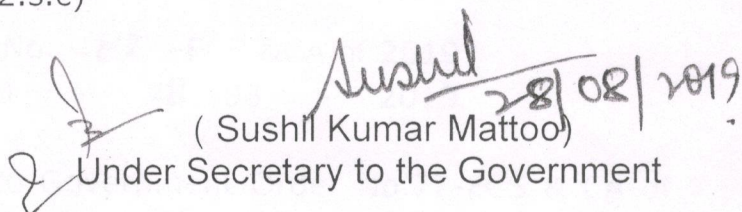 2.s.c)
Sushil
28/08/2019
( Sushil Kumar Mattoo)
Under Secretary to the Government